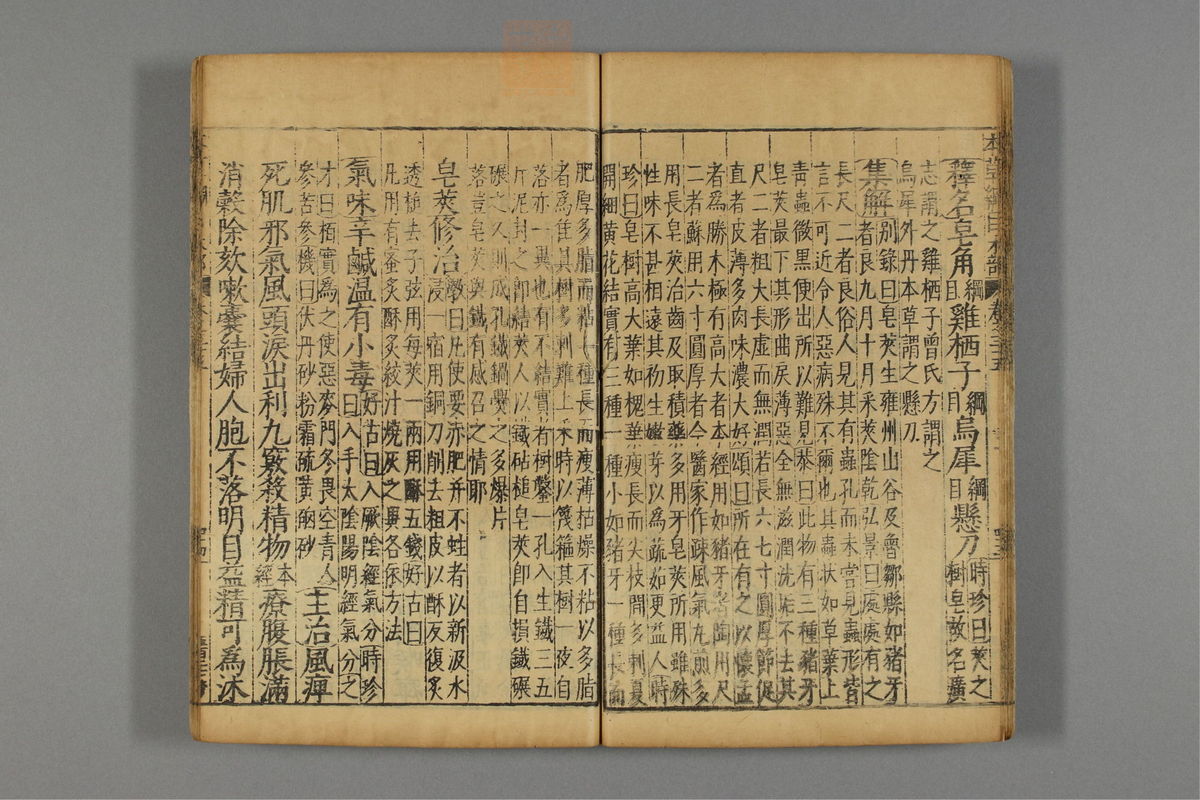 釋名皂角綱目雞栖子綱目烏犀綱目懸刀時珍曰莢之樹皂故名廣
志謂之雞栖子曾氏方謂之
烏犀外丹本草謂之懸刀
集解别錄曰皂莢生雍州山谷及魯鄒縣如豬牙
者良九月十月采莢陰乾弘景曰處處有之
長尺二者良俗人見其有蟲孔而未嘗見蟲形皆
言不可近令人惡病殊不爾也其蟲狀如草葉上
青蟲微黑便出所以難見恭曰此物有三種豬牙
皂莢最下其形曲戾薄惡全無滋潤洗垢不去其
尺二者粗大長虛而無潤若長六七寸圓厚節促
直者皮薄多肉味濃大好頌曰所在有之以懷孟
者為勝木極有高大者本經用如豬牙者陶用尺
二者蘇用六寸圓厚者今醫家作疎風氣丸煎多
用長皂莢治齒及取積藥多用牙皂莢所用雖殊
性味不甚相遠其初生嫩芽以為蔬茹更益人時
珍曰皂樹高大葉如槐葉瘦長而尖枝間多刺夏
開細黃花結實有三種一種小如豬牙一種長而
肥厚多脂而粘一種長而瘦薄枯燥不粘以多脂
者為佳其樹多刺難上采時以篾箍其樹一夜自
落亦一異也有不結實者樹鑿一孔入生鐵三五
斤泥封之即結莢人以鐵砧槌皂莢即自損鐵碾
碾之久則成孔鐵鍋爨之多爆片
落豈皂莢與鐵有感召之情耶
皂莢修治斆曰凡使要赤肥并不蛀者以新汲水
浸一宿用銅刀削去粗皮以酥反復炙
透槌去子弦每莢一兩用酥五錢好古曰
凡用有蜜炙酥炙絞汁燒灰之異各依方法
氣味辛鹹温有小毒好古曰入厥陰經氣分時珍
曰入手太陰陽明經氣分之
才曰栢實為之使惡麥門冬畏空青人
參苦參機曰伏丹砂粉霜硫黃硇砂主治風痺
死肌邪氣風頭淚出利九竅殺精物本經療腹脹滿
消穀除欬嗽囊結婦人胞不落明目益精可為沐